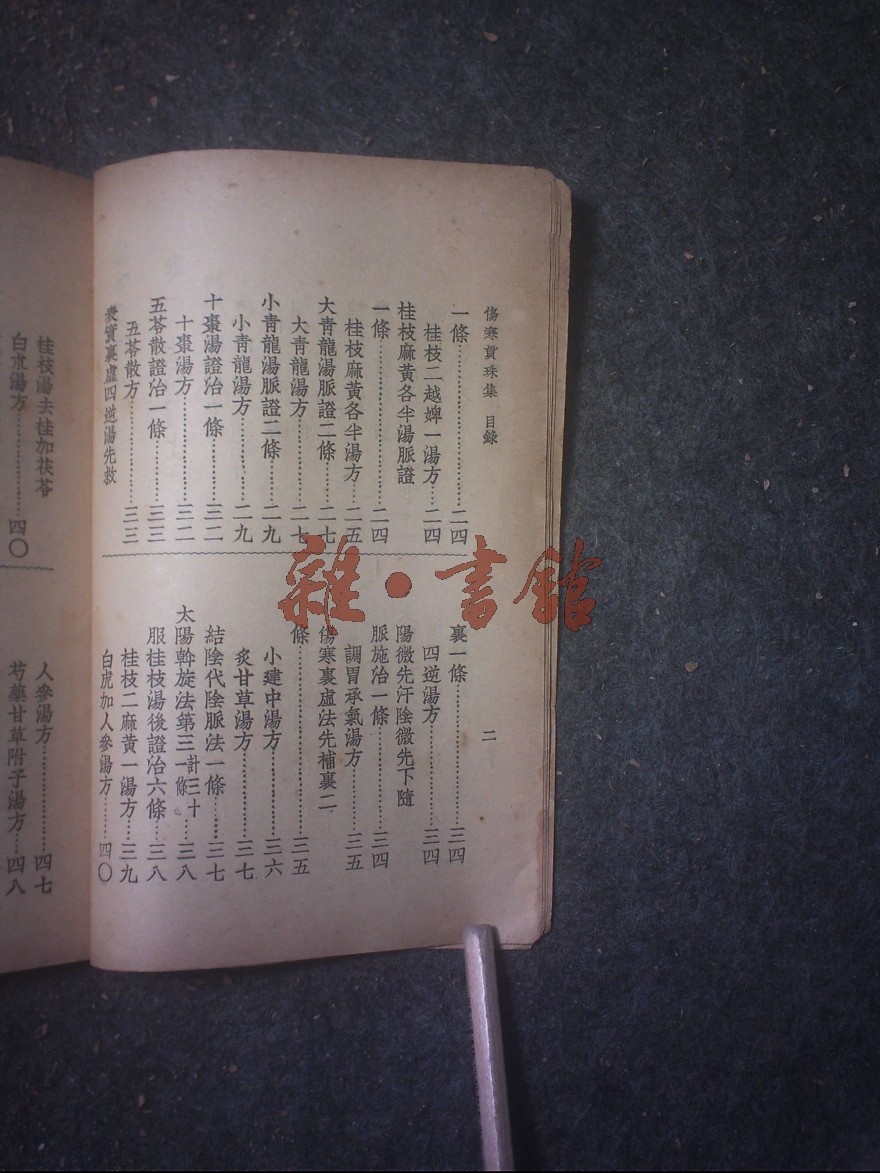 傷寒貫珠集 目錄
二
一條…………二四
桂枝二越婢一湯方…二四
桂枝麻黃各半湯脈證
一條…………二四
桂枝麻黃各半湯方…二五
大青龍湯脈證二條…二七
大青龍湯方………二七
小青龍湯脈證二條…二九
小青龍湯方………二九
十棗湯證治一條……三二
十棗湯方………三二
五苓散證治一條……三三
五苓散方………三三
表實裏虛四逆湯先救
裏一條…………三四
四逆湯方………三四
陽微先汗陰微先下隨
脈施治一條………三四
調胃承氣湯方……三五
傷寒裏虛法先補裏二
條…………三五
小建中湯方………三六
炙甘草湯方………三七
結陰代陰脈法一條…三七
太陽斡旋法第三計三十一條…三八
服桂枝湯後證治六條…三八
桂枝二麻黃一湯方…三九
白虎加人參湯方……四〇
桂枝湯去桂加茯苓
白朮湯方………四〇
人參湯方…………四七
芍藥甘草附子湯方…四八
雜·書館